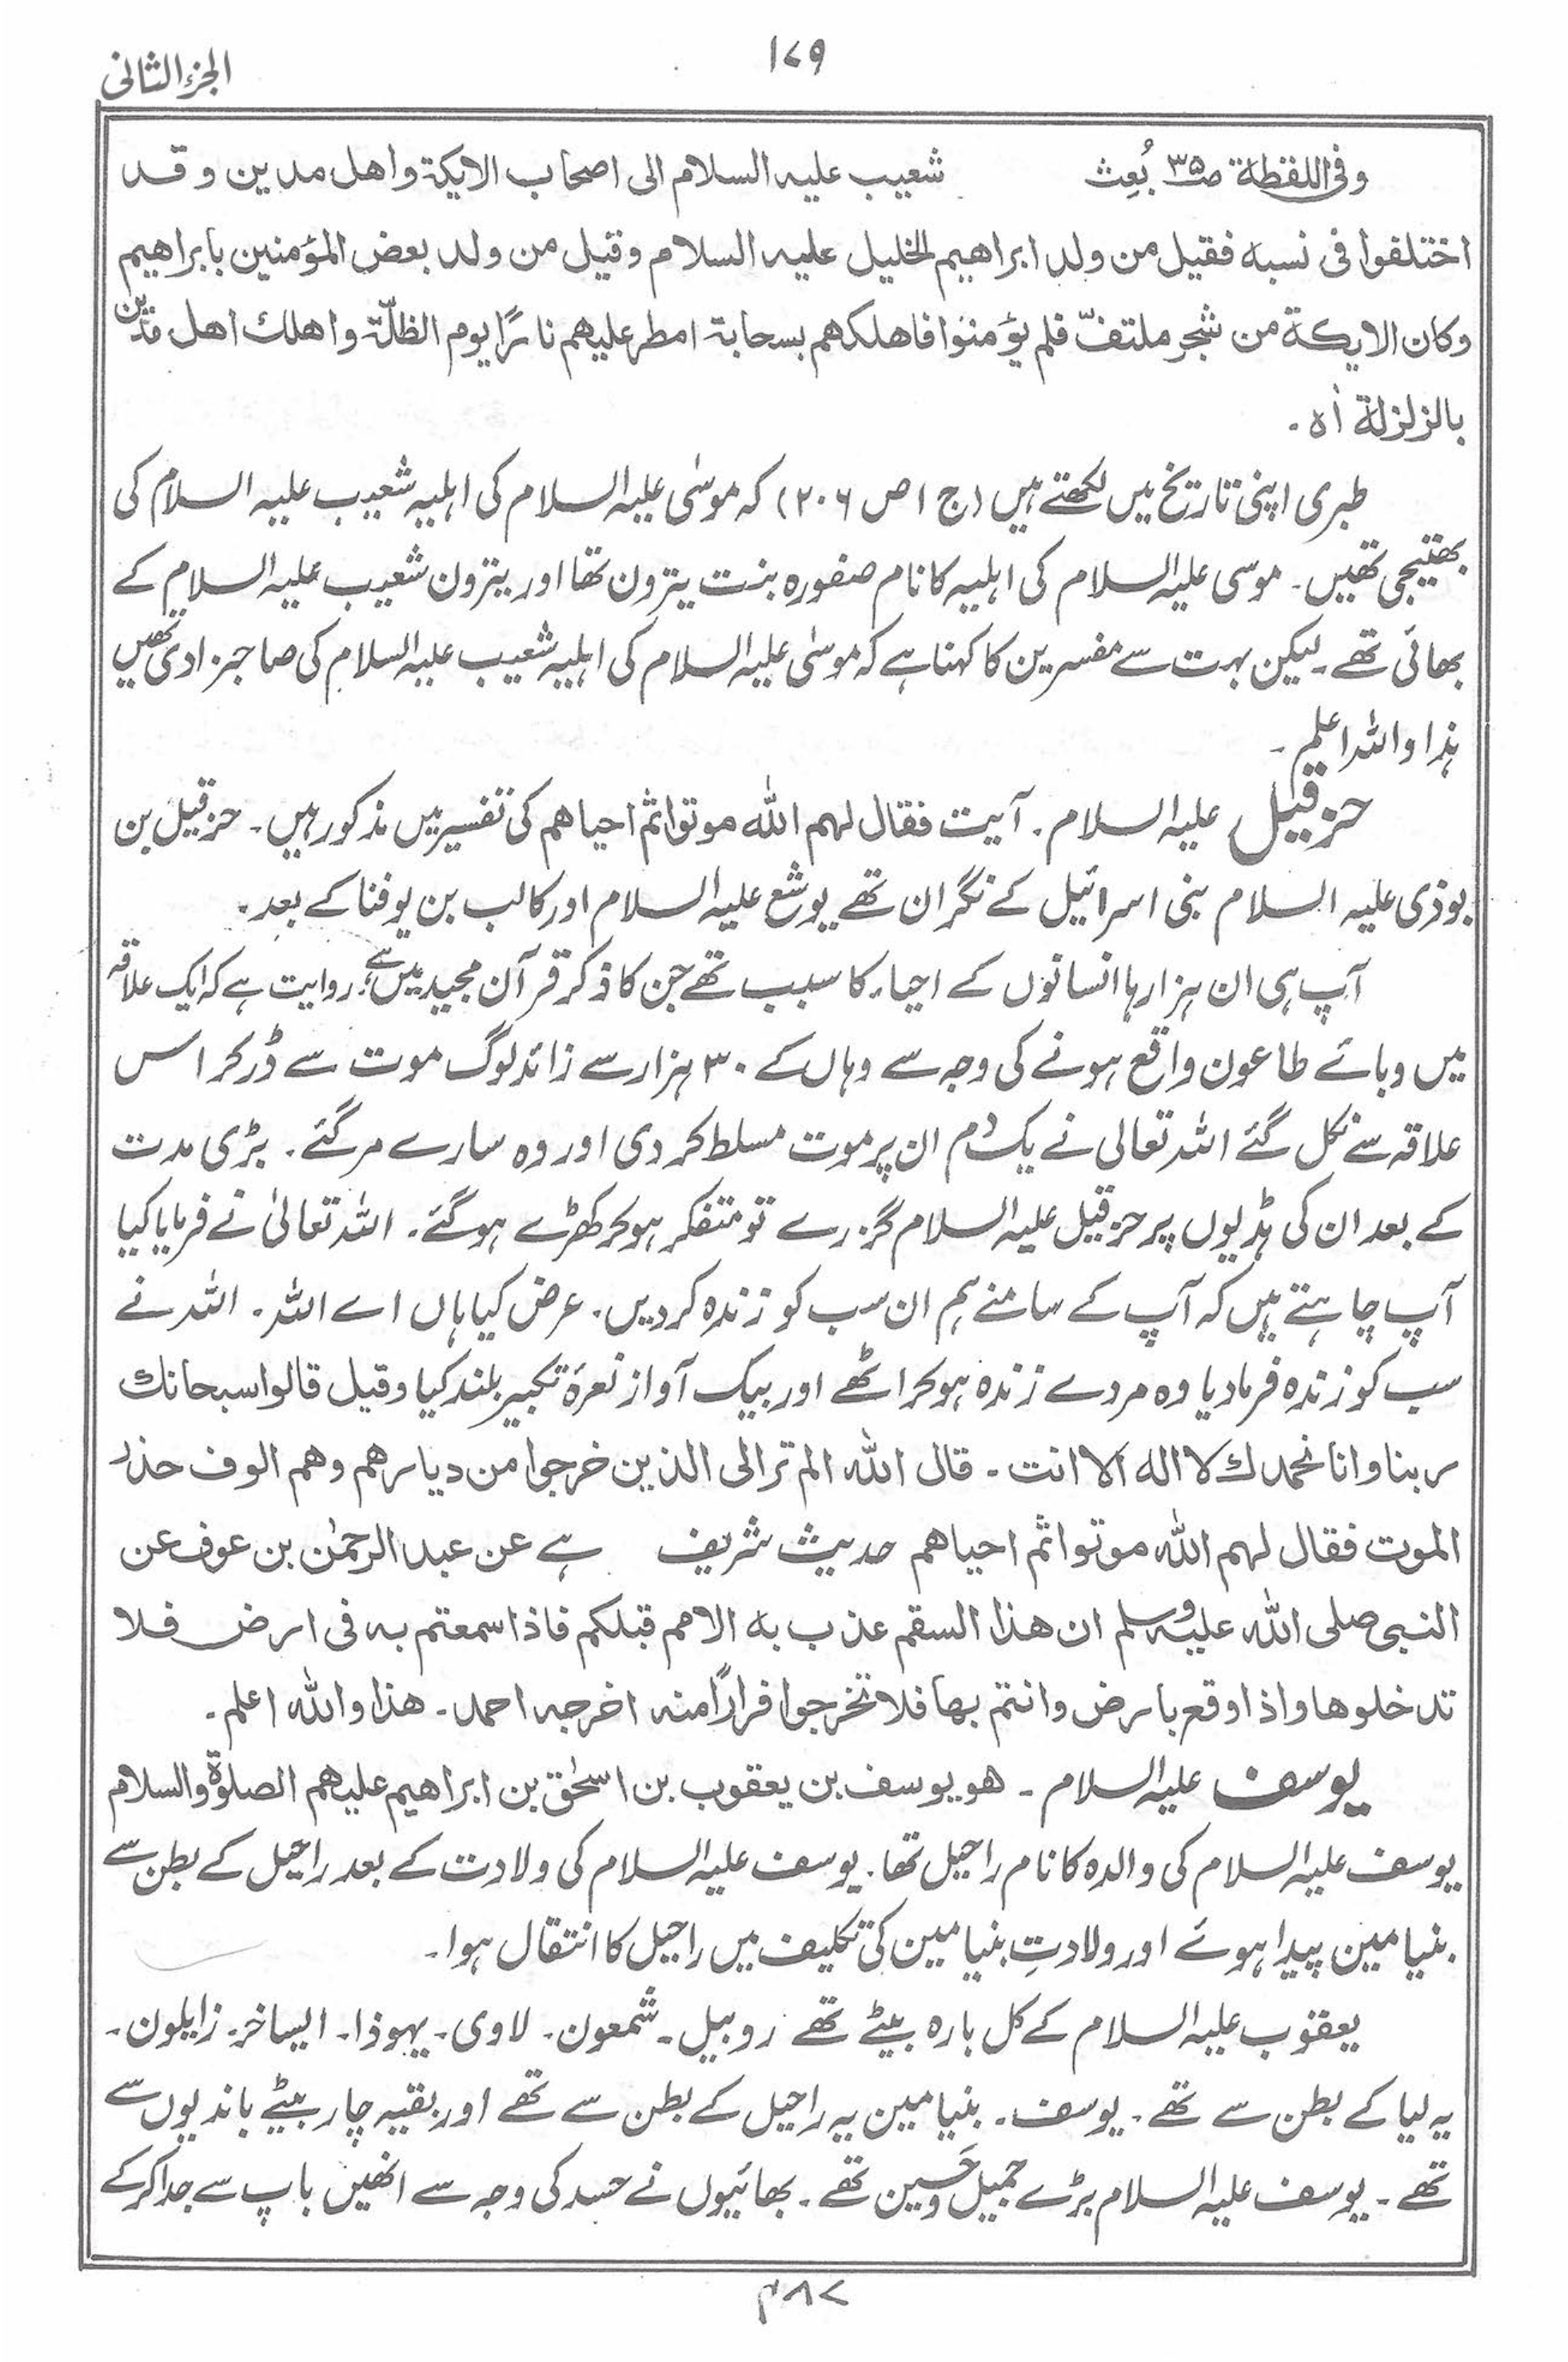 ۱۷۹
الجزء الثانی
وفی اللقطۃ ص۳۵ بُعِث شعیب علیہ السلام الی اصحاب الایکۃ واھل مدین وقد
اختلفوا فی نسبہ فقیل من ولد ابراھیم الخلیل علیہ السلام وقیل من ولد بعض المؤمنین بابراھیم
وکان الایکۃ من شجر ملتفّ فلم یؤمنوا فاھلکھم بسحابۃ امطر علیھم نارًا یوم الظلّۃ واھلك اھل مَدْین
بالزلزلۃ اٰہ ۔
طبری اپنی تاریخ میں لکھتے ہیں (ج ۱ ص ۲۰۶) کہ موسٰی علیہ السلام کی اہلیہ شعیب علیہ السلام کی
بھتیجی تھیں ۔ موسی علیہ السلام کی اہلیہ کا نام صفورہ بنت یترون تھا اور یترون شعیب علیہ السلام کے
بھائی تھے ۔ لیکن بہت سے مفسرین کا کہنا ہے کہ موسٰی علیہ السلام کی اہلیہ شعیب علیہ السلام کی صاحبزادی تھیں
ہٰذا واللہ اعلم ۔
حزقیل علیہ السلام ۔ آیت فقال لہم اللّٰہ موتوا ثم احیاھم کی تفسیر میں مذکور ہیں ۔ حزقیل بن
بوذی علیہ السلام بنی اسرائیل کے نگران تھے یوشع علیہ السلام اور کالب بن یوفنا کے بعد ۔
آپ ہی ان ہزارہا انسانوں کے احیاء کا سبب تھے جن کا ذکر قرآن مجید میں ہے ، روایت ہے کہ ایک علاقہ
میں وبائے طاعون واقع ہونے کی وجہ سے وہاں کے ۳۰ ہزار سے زائد لوگ موت سے ڈر کر اس
علاقہ سے نکل گئے اللہ تعالی نے یک دم ان پر موت مسلط کر دی اور وہ سارے مر گئے ۔ بڑی مدت
کے بعد ان کی ہڈیوں پر حزقیل علیہ السلام گزرے تو متفکر ہو کر کھڑے ہو گئے ۔ اللہ تعالیٰ نے فرمایا کیا
آپ چاہتے ہیں کہ آپ کے سامنے ہم ان سب کو زندہ کر دیں ۔ عرض کیا ہاں اے اللہ ۔ اللہ نے
سب کو زندہ فرما دیا وہ مردے زندہ ہو کر اٹھے اور بیک آواز نعرۂ تکبیر بلند کیا وقیل قالوا سبحانك
ربنا وانا نحمدك لا الہ الا انت ۔ قال اللّٰہ الم تر الی الذین خرجوا من دیارھم وھم الوف حذر
الموت فقال لہم اللّٰہ موتوا ثم احیاھم حدیث شریف ہے عن عبد الرحمٰن بن عوف عن
النبی صلی اللّٰہ علیہ وسلم ان ھذا السقم عذب بہ الامم قبلکم فاذا سمعتم بہ فی ارض فلا
تدخلوھا واذا وقع بارض وانتم بھا فلا تخرجوا فرارًا منہ اخرجہ احمد ۔ ھذا واللّٰہ اعلم ۔
یوسف علیہ السلام ۔ ھو یوسف بن یعقوب بن اسحٰق بن ابراھیم علیھم الصلوۃ والسلام
یوسف علیہ السلام کی والدہ کا نام راحیل تھا ۔ یوسف علیہ السلام کی ولادت کے بعد راحیل کے بطن سے
بنیامین پیدا ہوئے اور ولادتِ بنیامین کی تکلیف میں راحیل کا انتقال ہوا ۔
یعقوب علیہ السلام کے کل بارہ بیٹے تھے روبیل ۔ شمعون ۔ لاوی ۔ یہوذا ۔ ایساخر ۔ زابلون ۔
یہ لیا کے بطن سے تھے ۔ یوسف ۔ بنیامین یہ راحیل کے بطن سے تھے اور بقیہ چار بیٹے باندیوں سے
تھے ۔ یوسف علیہ السلام بڑے جمیل و حَسین تھے ۔ بھائیوں نے حسد کی وجہ سے انھیں باپ سے جدا کر کے